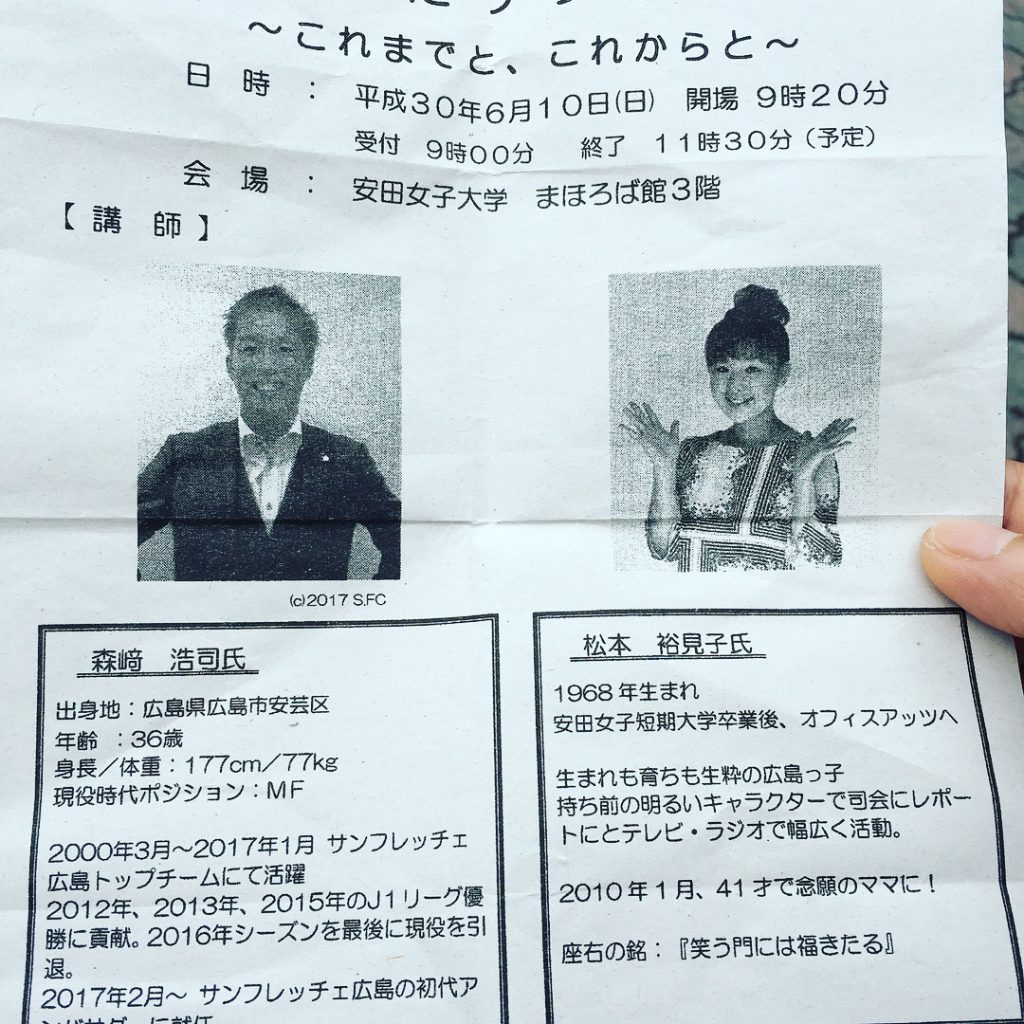 ～これまでと、これからと～
日　時　：　平成３０年６月１０日(日)　開場　９時２０分
受付　９時００分　　終了　１１時３０分（予定）
会　場　：　安田女子大学　まほろば館３階
【　講　師　】
(c)2017 S.FC
森﨑　浩司氏
出身地：広島県広島市安芸区
年齢　：36歳
身長／体重：177cm／77kg
現役時代ポジション：ＭＦ
2000年3月～2017年1月 サンフレッチェ
広島トップチームにて活躍
2012年、2013年、2015年のJ1リーグ優
勝に貢献。2016年シーズンを最後に現役を引
退。
2017年2月～ サンフレッチェ広島の初代ア
ンバサダーに就任
松本　裕見子氏
1968年生まれ
安田女子短期大学卒業後、オフィスアッツへ
生まれも育ちも生粋の広島っ子
持ち前の明るいキャラクターで司会にレポー
トにとテレビ・ラジオで幅広く活動。
2010年１月、41才で念願のママに！
座右の銘：『笑う門には福きたる』